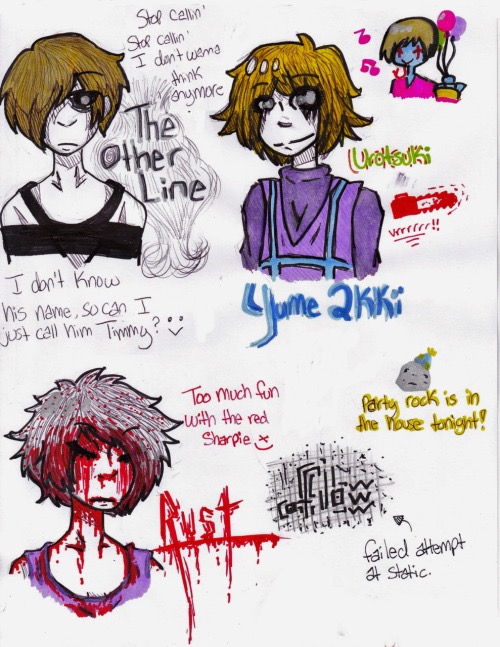 Stop callin'
Stop callin'
I don't wanna
think
anymore
The
Other
Line
I don't know
his name, so can I
just call him Timmy?
Urotsuki
vrrrrrr!!
Yume 2kki
Too much fun
with the red
Sharpie
Rust
Party rock is in
the house tonight!
failed attempt
at static.